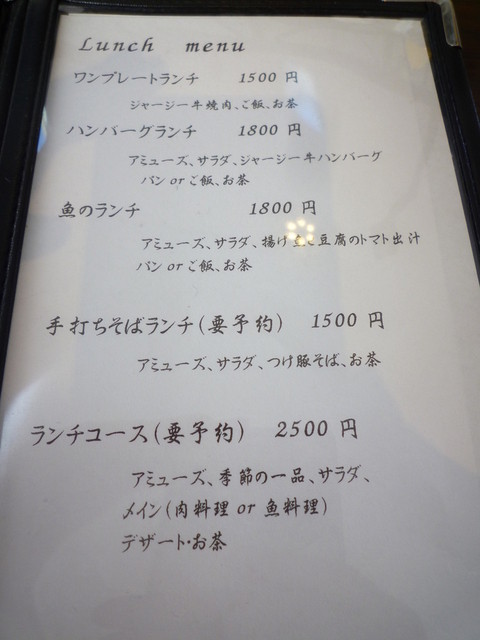 Lunch menu
ワンプレートランチ 1500 円
ジャージー牛焼肉、ご飯、お茶
ハンバーグランチ 1800 円
アミューズ、サラダ、ジャージー牛ハンバーグ
パン or ご飯、お茶
魚のランチ 1800 円
アミューズ、サラダ、揚げ 豆腐のトマト出汁
パン or ご飯、お茶
手打ちそばランチ(要予約) 1500 円
アミューズ、サラダ、つけ豚そば、お茶
ランチコース(要予約) 2500 円
アミューズ、季節の一品、サラダ、
メイン(肉料理 or 魚料理)
デザート・お茶